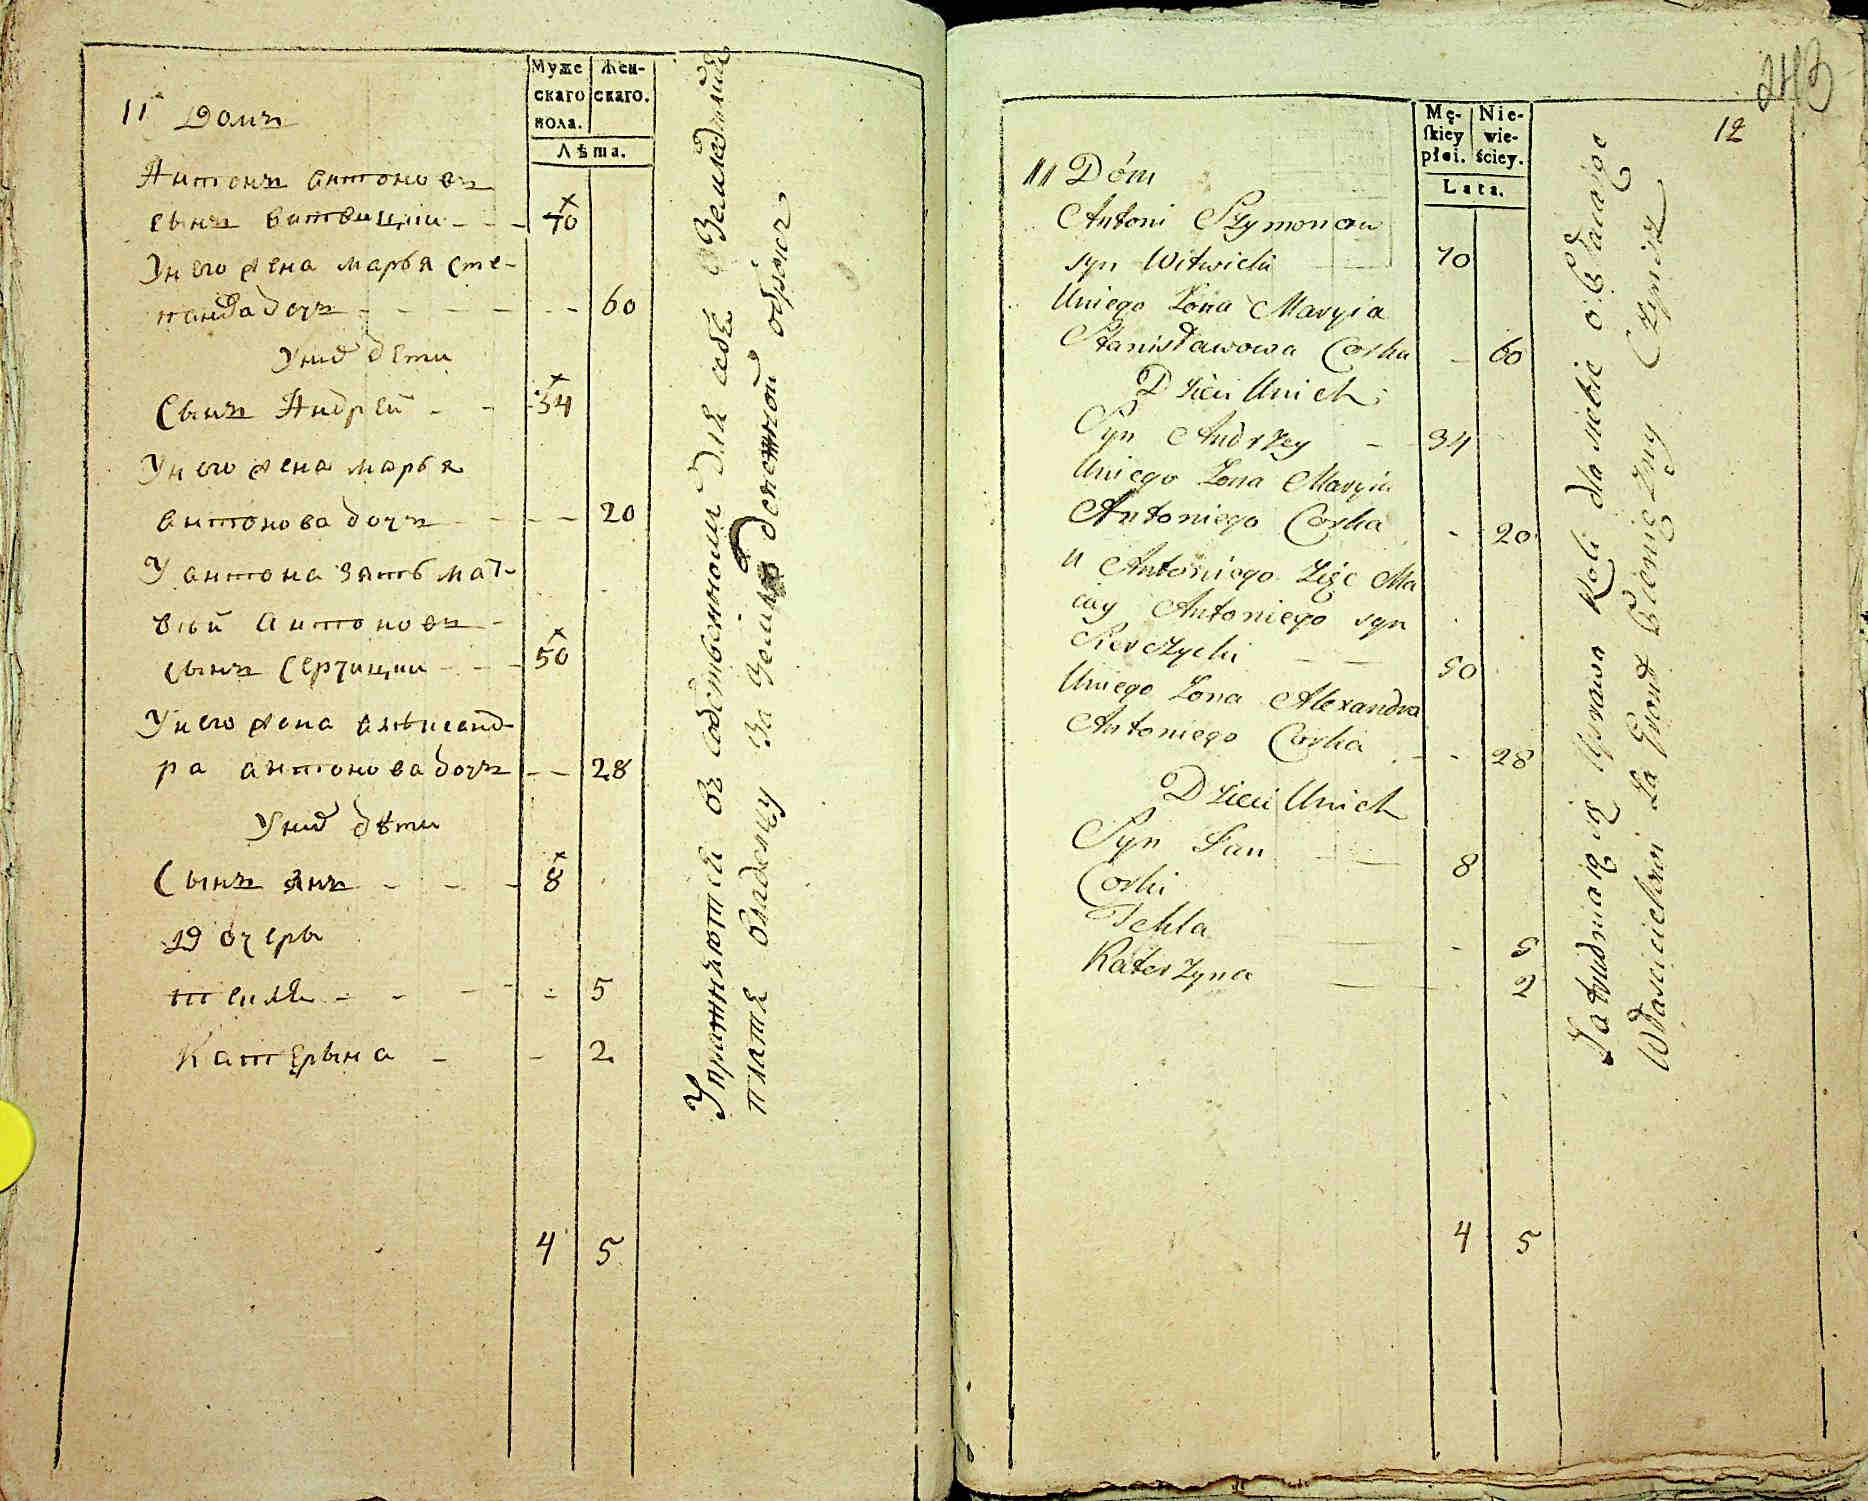 Муже
скаго
пола.
Жен-
скаго.
Лѣта.
11 Домъ
Антонъ Антоновъ
сынъ Витвицки - - - 70
У него жена Марья Сте-
панова дочъ - - - - - - 60
У них дети
Сынъ Андрей - - 34
У него жена Марья
Антонова дочъ - - - - 20
У Антона зять Мат-
вѣй Антоновъ -
сынъ Серчицки - - - 50
У него жена Александ-
ра Антонова дочъ - - 28
У них дѣти
Сынъ Янъ - - - - 8
Дочеры
текля - - - - - 5
Катерына - - 2
4 5
Упражняются въ собственномъ для себя Земледелии
платя владелцу За Землю денежной оброкъ
243
12
Mę-
ſkiey
płci.
Nie-
wie-
ściey.
Lata.
11 Dóm
Antoni Szymonow
syn Witwicki 70
Uniego Zona Maryia
Stanisławowa Corka - 60
Dzieci Unich
Syn Andrzey - 34
Uniego Zona Maryia
Antoniego Corka - - 20
u Antoniego Zięc Ma
ciey Antoniego syn
Serczycki - - 50
Uniego Zona Alexandra
Antoniego Corka - - 28
Dzieci Unich
Syn Jan - - 8
Corki
Tekla - - - 5
Katerzyna - - 2
4 5
Zatrudniaią się Uprawą Roli dla siebie opłacaiąc
Właścicielowi za Grunt Pieniężny Czynsz